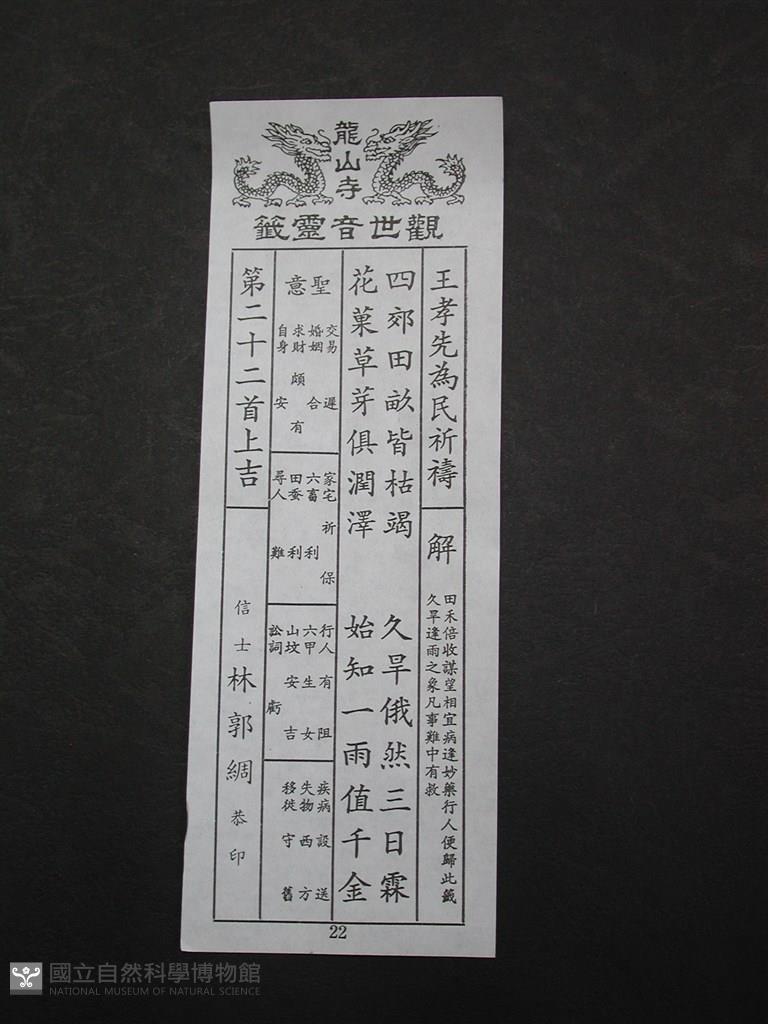 龍山寺
觀世音靈籤
王孝先為民祈禱
解
田禾倍收謀望相宜病逢妙藥行人便歸此籤
久旱逢雨之象凡事難中有救
四郊田畝皆枯竭 久旱俄然三日霖
花菓草芽俱潤澤 始知一雨值千金
聖意
交易 遲
婚姻 合
求財 頗有
自身 安
家宅 祈保
六畜 利
田蚕 利
尋人 難
行人 有阻
六甲 生女
山坟 安吉
訟詞 虧
疾病 設送
失物 西方
移徙 守舊
第二十二首上吉
信士 林郭綢 恭印
22
國立自然科學博物館
NATIONAL MUSEUM OF NATURAL SCIENCE